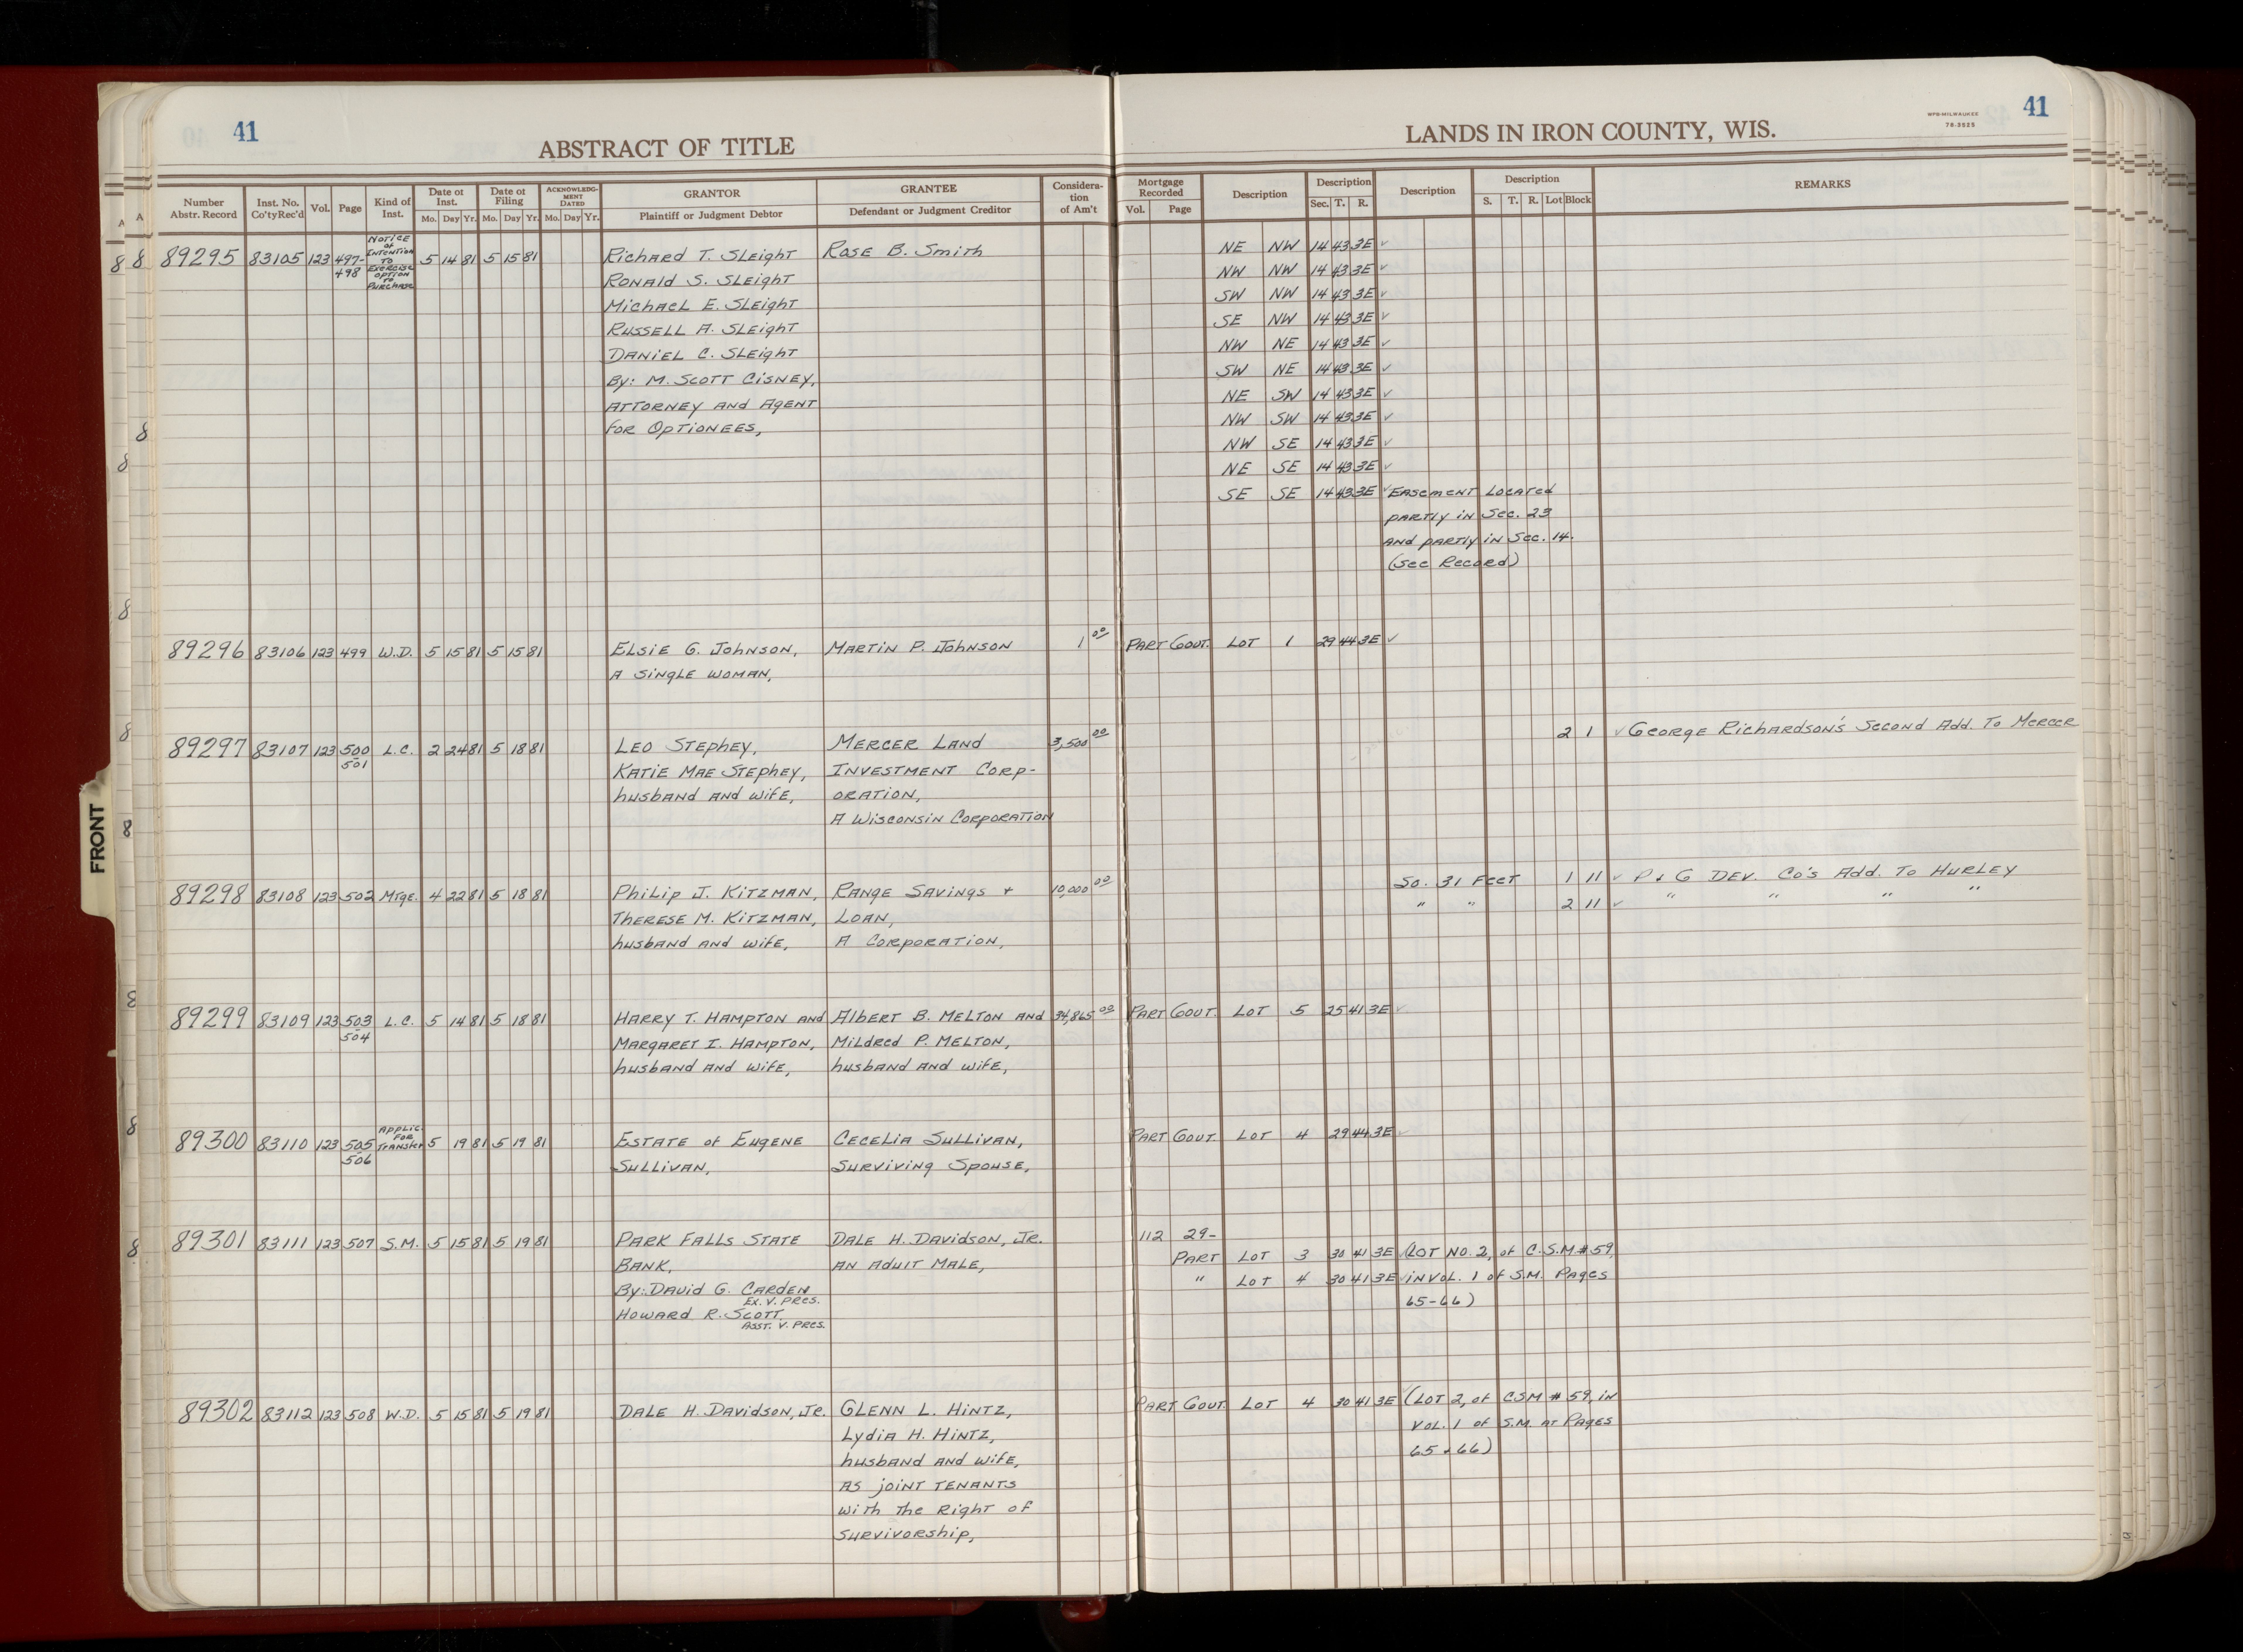 41
ABSTRACT OF TITLE
LANDS IN IRON COUNTY, WIS.
WPB-MILWAUKEE
78-3525
41
Number Abstr. Record | Inst. No. Co'tyRec'd | Vol. | Page | Kind of Inst. | Date of Inst. Mo. Day Yr. | Date of Filing Mo. Day Yr. | ACKNOWLEDGMENT DATED Mo. Day Yr. | GRANTOR Plaintiff or Judgment Debtor | GRANTEE Defendant or Judgment Creditor | Consideration of Am't | Mortgage Recorded Vol. Page | Description | Description Sec. T. R. | Description | Description S. T. R. Lot Block | REMARKS
89295 83105 123 497-498 NOTICE OF INTENTION TO EXERCISE OPTION TO PURCHASE 5 14 81 5 15 81 Richard T. Sleight Rose B. Smith NE NW 14 43 3E ✓
Ronald S. Sleight NW NW 14 43 3E ✓
Michael E. Sleight SW NW 14 43 3E ✓
Russell A. Sleight SE NW 14 43 3E ✓
Daniel C. Sleight NW NE 14 43 3E ✓
By: M. Scott Cisney, SW NE 14 43 3E ✓
Attorney and Agent NE SW 14 43 3E ✓
for Optionees, NW SW 14 43 3E ✓
NW SE 14 43 3E ✓
NE SE 14 43 3E ✓
SE SE 14 43 3E ✓ Easement Located
partly in Sec. 23
and partly in Sec. 14.
(See Record)
89296 83106 123 499 W.D. 5 15 81 5 15 81 Elsie G. Johnson, Martin P. Johnson 1 00 Part Gout. Lot 1 29 44 3E ✓
A single woman,
89297 83107 123 500 501 L.C. 2 24 81 5 18 81 Leo Stephey, Mercer Land 3,500 00 2 1 ✓ George Richardson's Second Add. To Mercer
Katie Mae Stephey, Investment Corp-
husband and wife, oration,
A Wisconsin Corporation
89298 83108 123 502 Mtge. 4 22 81 5 18 81 Philip J. Kitzman, Range Savings + 10,000 00 So. 31 Feet 1 11 ✓ P & G Dev. Co's Add. To Hurley
Therese M. Kitzman, Loan, " " 2 11 ✓ " " " "
husband and wife, A Corporation,
89299 83109 123 503 504 L.C. 5 14 81 5 18 81 Harry T. Hampton and Albert B. Melton and 34,865 00 Part Gout. Lot 5 25 41 3E ✓
Margaret I. Hampton, Mildred P. Melton,
husband and wife, husband and wife,
89300 83110 123 505 506 Applic. For Transfer 5 19 81 5 19 81 Estate of Eugene Cecelia Sullivan, Part Gout. Lot 4 29 44 3E ✓
Sullivan, Surviving Spouse,
89301 83111 123 507 S.M. 5 15 81 5 19 81 Park Falls State Dale H. Davidson, Jr. 112 29-
Bank, an adult male, Part Lot 3 30 41 3E ✓ (Lot No. 2, of C.S.M. # 59,
By: David G. Carden " Lot 4 30 41 3E ✓ in Vol. 1 of S.M. Pages
Ex. V. Pres. 65-66)
Howard R. Scott
Asst. V. Pres.
89302 83112 123 508 W.D. 5 15 81 5 19 81 Dale H. Davidson, Jr. Glenn L. Hintz, Part Gout. Lot 4 30 41 3E (Lot 2, of CSM # 59, in
Lydia H. Hintz, Vol. 1 of S.M. at Pages
husband and wife, 65 + 66)
as joint tenants
with the right of
survivorship,
FRONT